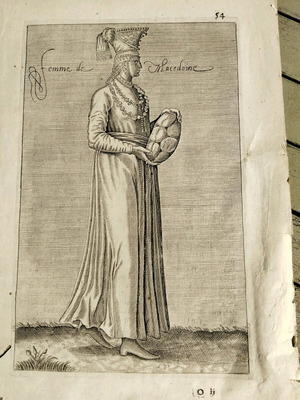 54
Femme de Macedoine
O ij